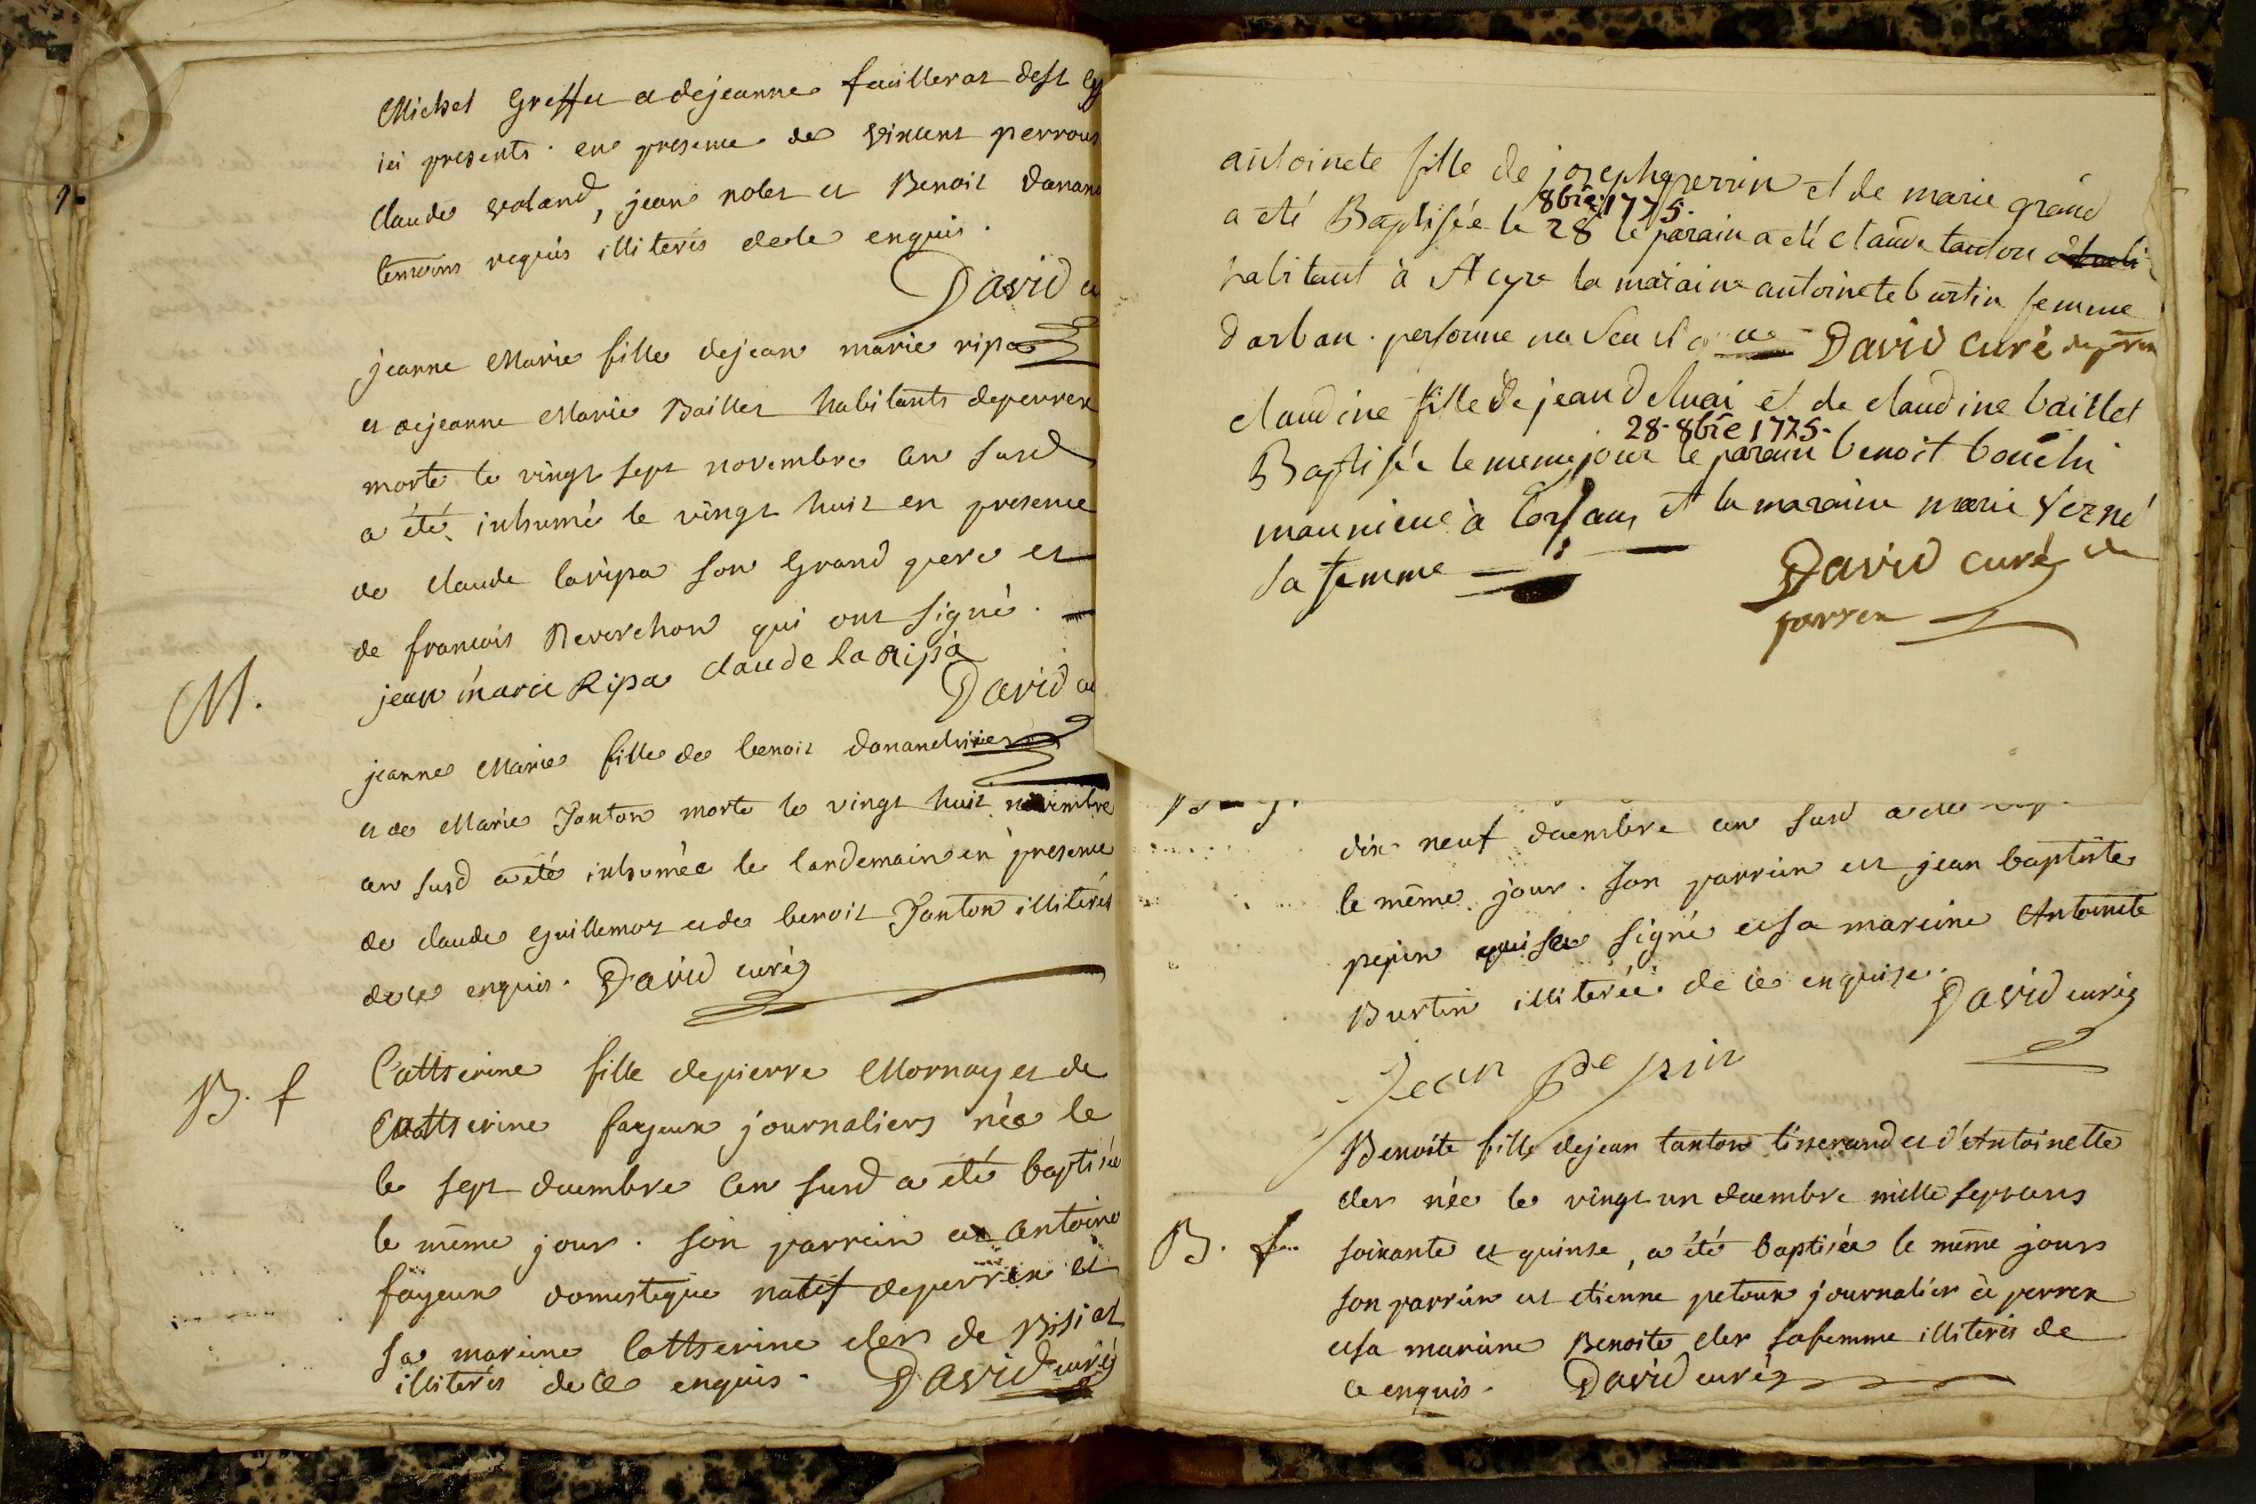 Michel Greffet et de jeanne feuilleras de St
ici presents. en presence de Vincent perroux
Claude Voland, jean nolet et Benoit danan
temoins requis illiterés de ce enquis.
David
jeanne Marie fille de jean marie ripa
et de jeanne Marie Baillet habitants de perrex
morte le vingt sept novembre an susd
a été inhumé le vingt huit en presence
de Claude laripa son Grand pere et
de francois Reverchon qui ont signé.
jean marie Ripa claude la Ripa
David cu
M.
jeanne Marie fille de benoit danandrie
et de Marie Janton morte le vingt huit novembre
an susd a été inhumée le landemain en presence
de claude Guillemot et de benoit Janton illiterés
de ce enquis. David curé
B. f
Catherine fille de pierre Mornay et de
Catherine fayeux journaliers née le
le sept decembre an susd a été baptisée
le même jour. son parrein est antoine
fayeux domestique natif de perrex et
sa mareine Catherine clers de
illiterés de ce enquis. David curé
antoinete fille de joseph perrin et de marie grand
8bre 1775.
a eté Baptisée le 28 le parain a eté claude tanton
habitant à St cyre la maraine antoinete burtin femme
darban. personne na seu David curé de perrex
claudine fille de jean et de claudine baillet
28-8bre 1775-
Baptisée le meme jour le parain benoit bouchi
maunieue à et la maraine marie Verné
sa femme David curé de
perrex
dix neuf decembre an susd a été
le même jour. son parrein est jean baptiste
pepin qui a signé et sa mareine Antoinete
Burtin illiterée de ce enquise.
David curé
Jean pepin
Benoite fille de jean tanton tisserand et d'Antoinette
cler née le vingt un decembre mille sept cens
B. f.. soixante et quinse, a été baptisée le même jours
son parrein est etienne petoux journalier à perrex
et sa mareine Benoite cler sa femme illiterés de
ce enquis. David curé